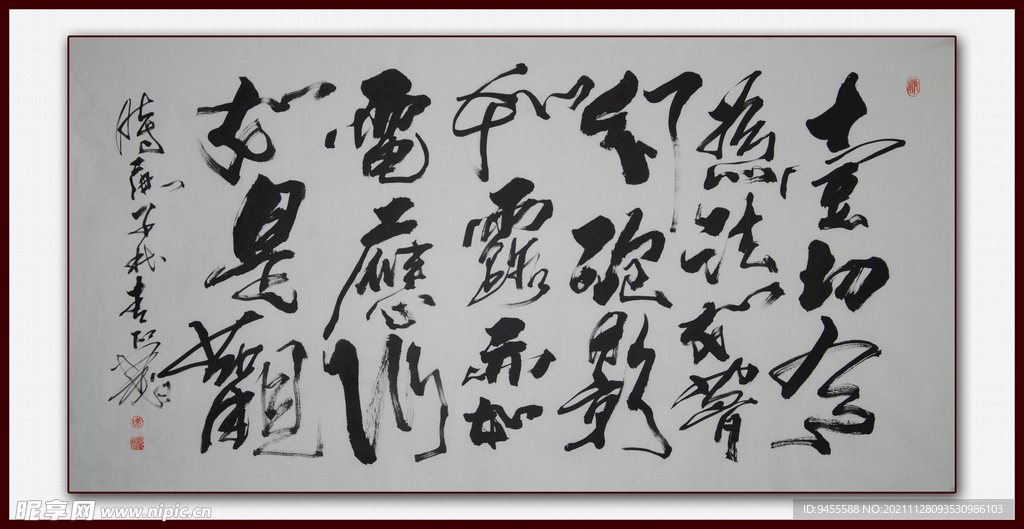 壹切有
為法如夢
幻泡影
如露亦如
電應作
如是觀
昵享网 www.nipic.cn
ID:9455588 NO:20211128093530986103